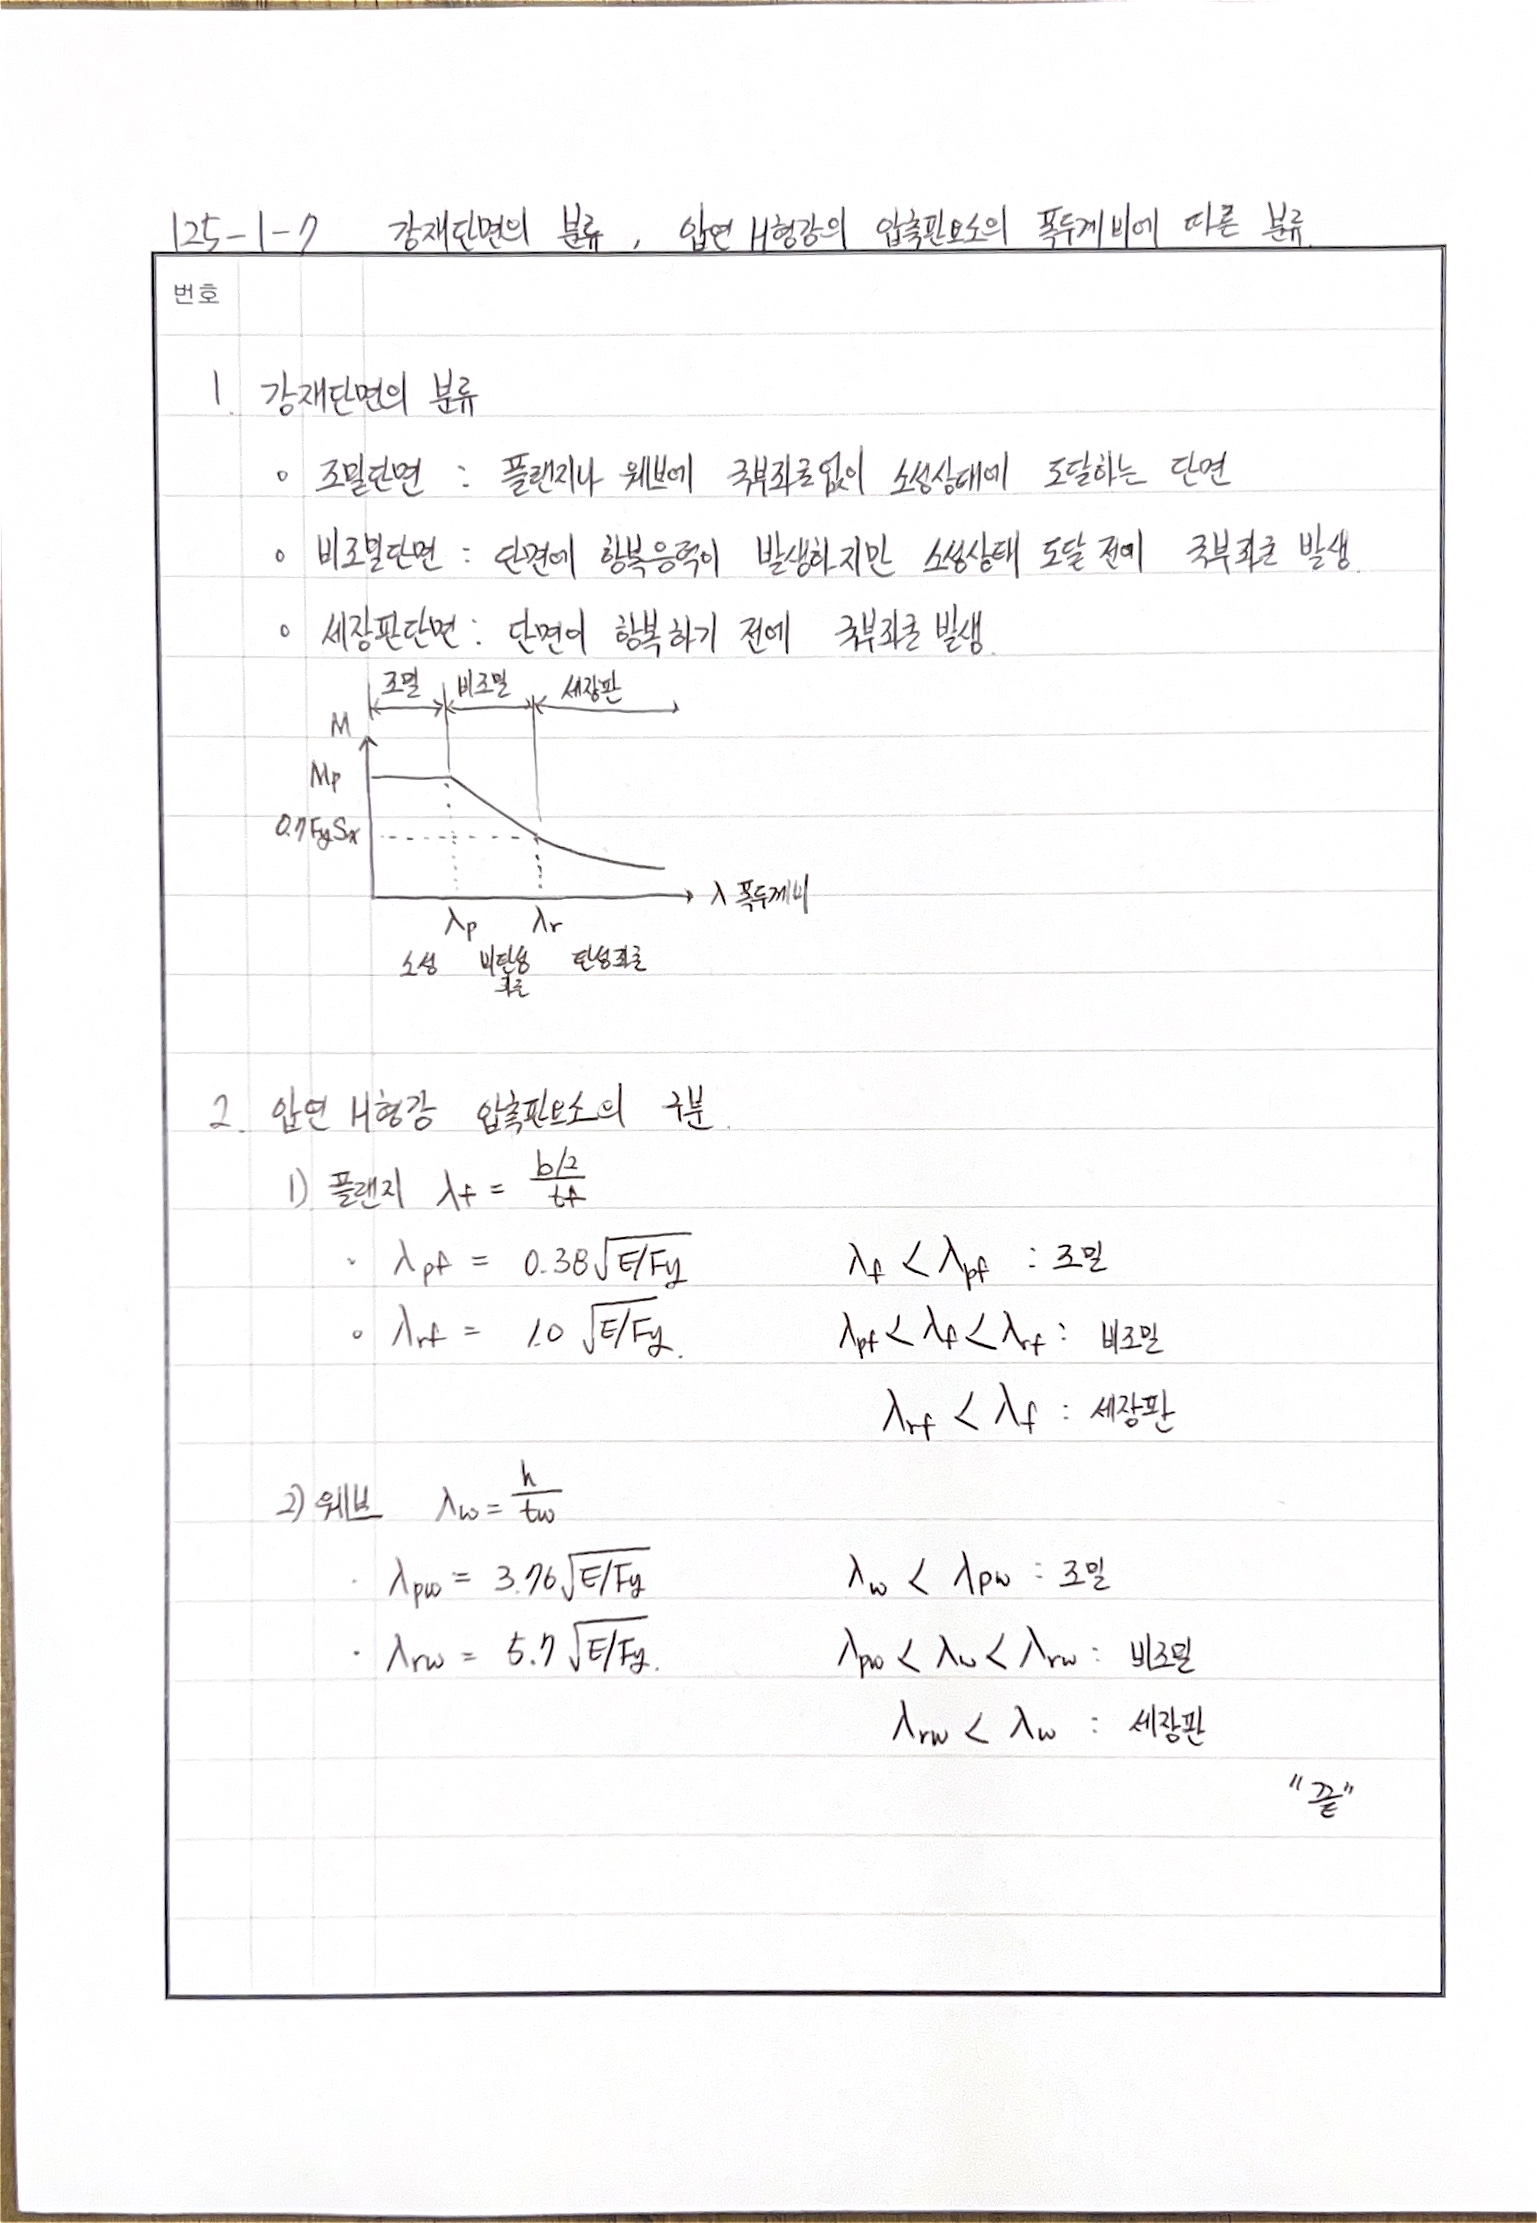 125-1-7 강재단면의 분류, 압연 H형강의 압축판요소의 폭두께비에 따른 분류.
번호
1. 강재단면의 분류
◦ 조밀단면 : 플랜지나 웨브에 국부좌굴없이 소성상태에 도달하는 단면
◦ 비조밀단면 : 단면에 항복응력이 발생하지만 소성상태 도달 전에 국부좌굴 발생.
◦ 세장판단면 : 단면이 항복하기 전에 국부좌굴 발생.
조밀 비조밀 세장판
M
Mp
0.7FySx
λ 폭두께비
λp λr
소성 비탄성 탄성좌굴
좌굴
2. 압연 H형강 압축판요소의 구분.
1) 플랜지 λf = (b/2)/tf
· λpf = 0.38√E/Fy λf < λpf : 조밀
◦ λrf = 1.0 √E/Fy. λpf < λf < λrf : 비조밀
λrf < λf : 세장판
2) 웨브 λw = h/tw
· λpw = 3.76√E/Fy λw < λpw : 조밀
· λrw = 5.7√E/Fy. λpw < λw < λrw : 비조밀
λrw < λw : 세장판
"끝"